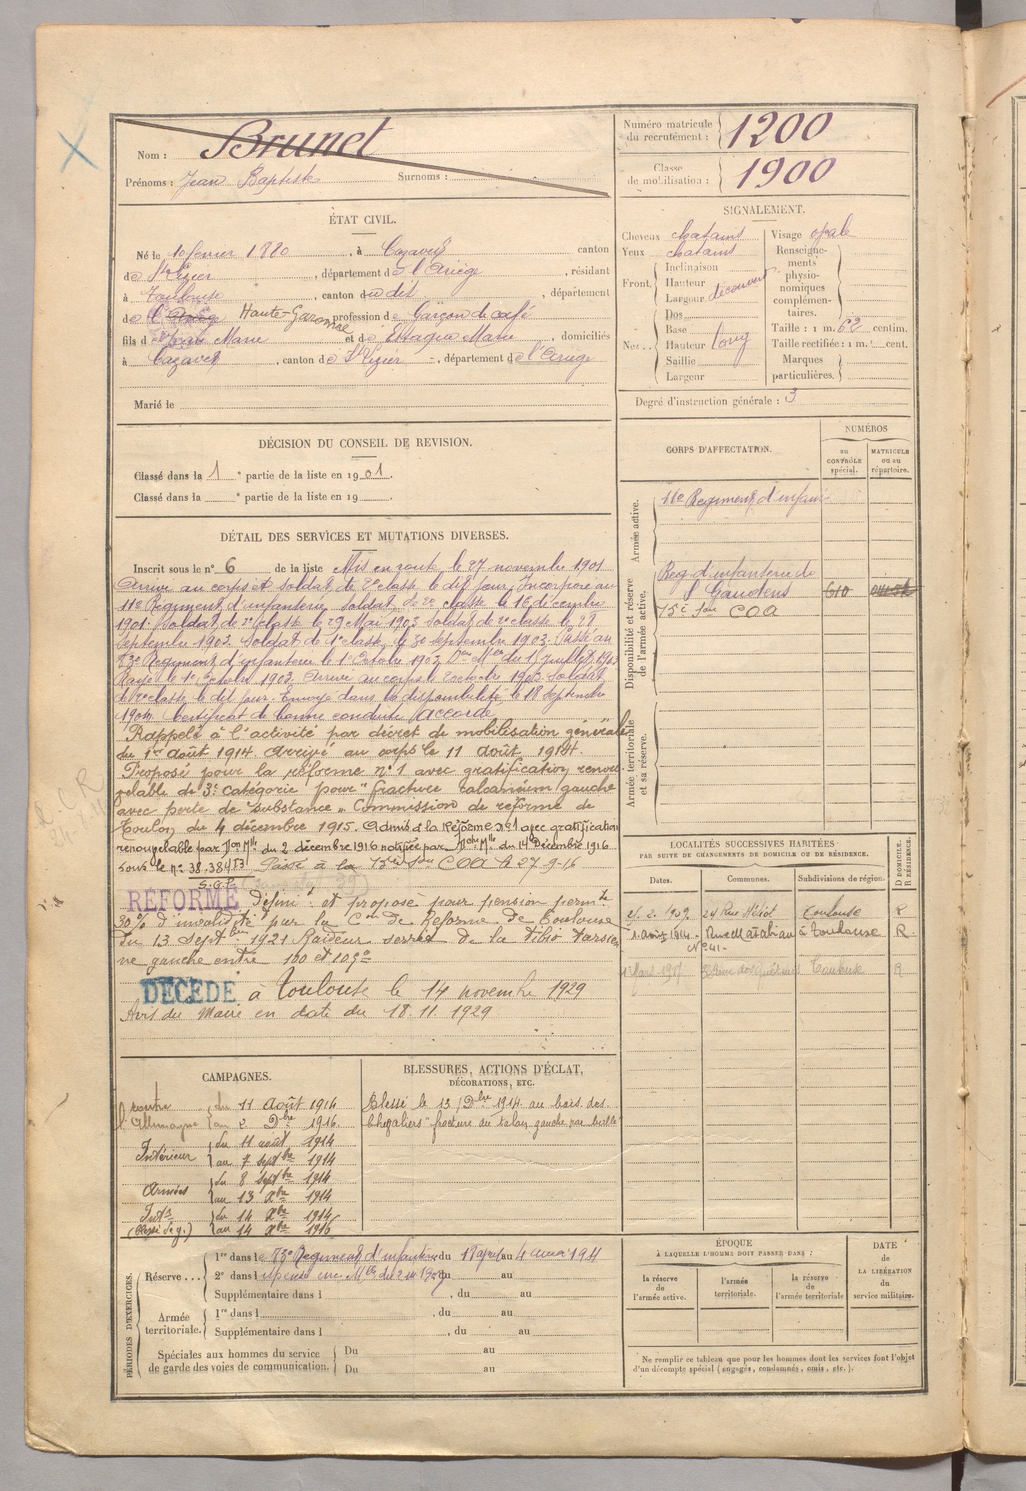 Nom : Brunet
Prénoms : Jean Baptiste Surnoms :
Numéro matricule du recrutement : 1200
Classe de mobilisation : 1900
ÉTAT CIVIL.
Né le 10 février 1880, à Cazavet canton
de St Lizier, département de l'Ariège, résidant
à Toulouse, canton du dit, département
de l'Ariège Haute-Garonne profession de Garçon de café
fils de Jean Marie et de Marie, domiciliés
à Cazavet, canton de St Lizier, département de l'Ariège
Marié le
SIGNALEMENT.
Cheveux chatains Visage ovale
Yeux chatains Renseigne-
Inclinaison ments
Front. Hauteur découvert physio-
Largeur nomiques
Dos complémen-
taires.
Base Taille : 1 m. 62 centim.
Nez.. Hauteur long Taille rectifiée : 1 m. cent.
Saillie Marques
Largeur particulières.
Degré d'instruction générale : 3
DÉCISION DU CONSEIL DE REVISION.
Classé dans la 1e partie de la liste en 1901.
Classé dans la e partie de la liste en 19 .
CORPS D'AFFECTATION.
NUMÉROS
au CONTRÔLE spécial.
MATRICULE ou au répertoire.
Armée active.
11e Régiment d'infanie
Disponibilité et réserve de l'armée active.
Reg d'infanterie de
St Gaudens 610
15e Son COA
Armée territoriale et sa réserve.
DÉTAIL DES SERVICES ET MUTATIONS DIVERSES.
Inscrit sous le n° 6 de la liste Mis en route le 27 novembre 1901
Arrivé au corps et soldat de 2e classe le dit jour. Incorporé au
11e Régiment d'infanterie soldat de 2e classe le 16 décembre
1901. Soldat de 1e classe le 29 Mai 1903 Soldat de 2e classe le 28
septembre 1903. Soldat de 1e classe le 30 septembre 1903. Passé au
83e Régiment d'infanterie le 1 Octobre 1903 Don Mlle du 15 juillet 1903
Rayé le 1er Octobre 1903. Arrivé au corps le 2 octobre 1903. Soldat
de 2e classe le dit jour. Envoyé dans la disponibilité le 18 septembre
1904. Certificat de bonne conduite Accordé
Rappelé à l'activité par décret de mobilisation générale
du 1er août 1914. Arrivé au corps le 11 août 1914.
Proposé pour la réforme n° 1 avec gratification renou-
velable de 3e catégorie pour "fracture calcanéum gauche
avec perte de substance". Commission de réforme de
Toulon du 4 décembre 1915. Admis à la Réforme N°1 avec gratification
renouvelable par Don Mlle du 2 décembre 1916 notifiée par Note Mlle du 14 Décembre 1916
sous le n° 38.384 Passé à la 15e Son COA le 27-9-16
S.G.P.
RÉFORMÉ Définit et proposé pour pension permte
30% d'invalidité par la Con de Réforme de Toulouse
du 13 septbre 1921 Raideur serrée de la tibio tarsien
ne gauche entre 100 et 105°
DÉCÉDÉ à Toulouse le 14 novembre 1929
Avis du Maire en date du 18.11.1929
LOCALITÉS SUCCESSIVES HABITÉES
PAR SUITE DE CHANGEMENTS DE DOMICILE OU DE RÉSIDENCE.
D DOMICILE. R RÉSIDENCE.
Dates. Communes. Subdivisions de région.
2. 1909. 24 Rue Toulouse R
1. août 1914 - Rue Matabiau à Toulouse R
N° 41
Toulouse R
CAMPAGNES.
Contre du 11 Août 1914
l'Allemagne au 2 Dbre 1916.
Intérieur du 11 août 1914
au 7 septbre 1914
Armées du 8 septbre 1914
au 13 Xbre 1914
Intr du 14 Xbre 1914
(blessé de g.) au 14 Xbre 1916
BLESSURES, ACTIONS D'ÉCLAT,
DÉCORATIONS, ETC.
Blessé le 13 Dbre 1914 au bois des
Chevaliers "fracture du talon gauche par balle"
PÉRIODES D'EXERCICES.
Réserve... 1re dans le 83e Régiment d'infanterie du au 4 1911
2e dans l du au
Supplémentaire dans l , du au
Armée territoriale. 1re dans l , du au
Supplémentaire dans l , du au
Spéciales aux hommes du service Du au
de garde des voies de communication. Du au
ÉPOQUE
À LAQUELLE L'HOMME DOIT PASSER DANS :
la réserve de l'armée active.
l'armée territoriale.
la réserve de l'armée territoriale
DATE
de
LA LIBÉRATION
du
service militaire.
Ne remplir ce tableau que pour les hommes dont les services font l'objet
d'un décompte spécial (engagés, condamnés, omis, etc.).